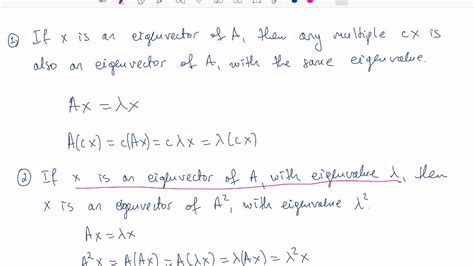 ① If x is an eigenvector of A, then any multiple cx is
also an eigenvector of A, with the same eigenvalue.
Ax = λx
A(cx) = c(Ax) = cλx = λ(cx)
② If x is an eigenvector of A, with eigenvalue λ, then
x is an eigenvector of A², with eigenvalue λ².
Ax = λx
A²x = A(Ax) = A(λx) = λ(Ax) = λ²x